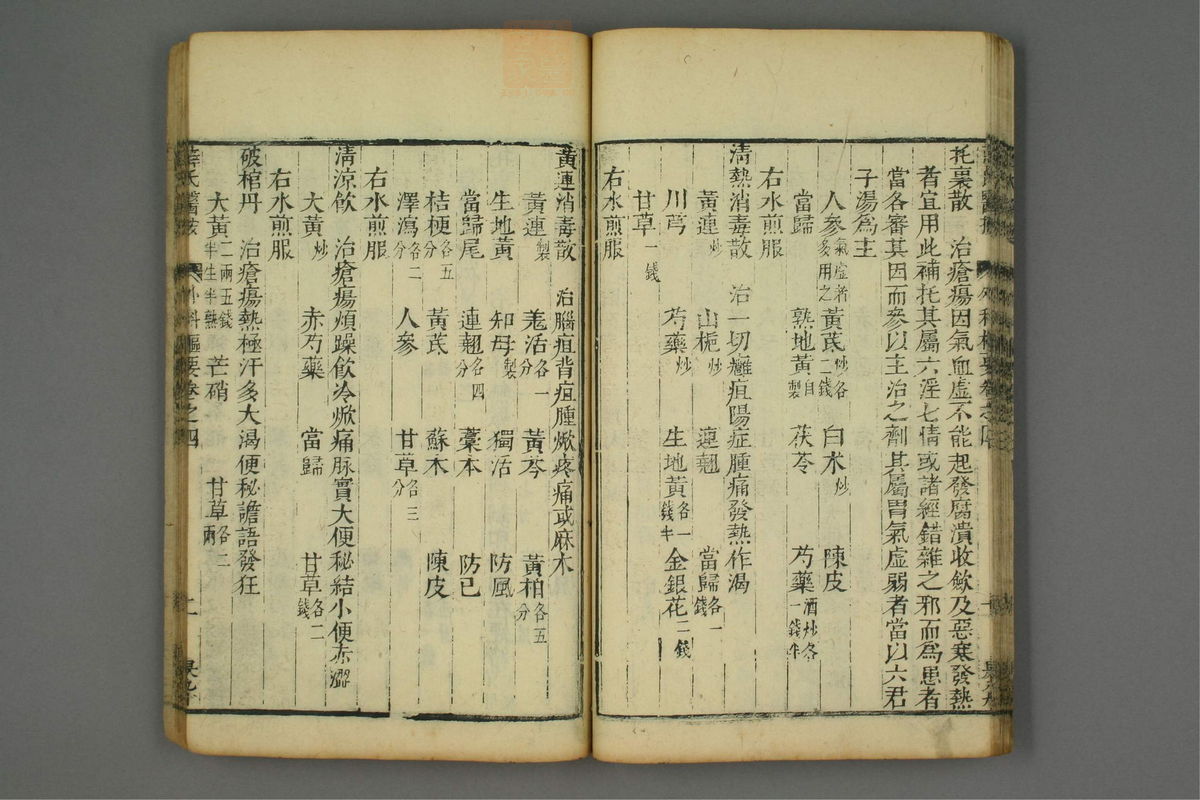 托裏散　治瘡瘍因氣血虛不能起發腐潰收斂及惡寒發熱
者宜用此補托其屬六淫七情或諸經錯雜之邪而爲患者
當各審其因而參以主治之劑其屬胃氣虛弱者當以六君
子湯爲主
人參氣虛者多用之　黃芪炒各二錢　白朮炒　陳皮
當歸　熟地黃自製　茯苓　芍藥酒炒各一錢半
右水煎服
清熱消毒散　治一切癰疽陽症腫痛發熱作渴
黃連炒　山梔炒　連翹　當歸各一錢
川芎　芍藥炒　生地黃各一錢半　金銀花二錢
甘草一錢
右水煎服
黃連消毒散　治腦疽背疽腫焮疼痛或麻木
黃連製　羌活各一分　黃芩　黃柏各五分
生地黃　知母製　獨活　防風
當歸尾　連翹各四分　藁本　防已
桔梗各五分　黃芪　蘇木　陳皮
澤瀉各二分　人參　甘草各三分
右水煎服
清涼飲　治瘡瘍煩躁飲冷焮痛脉實大便秘結小便赤澀
大黃炒　赤芍藥　當歸　甘草各二錢
右水煎服
破棺丹　治瘡瘍熱極汗多大渴便秘譫語發狂
大黃二兩五錢半生半熟　芒硝　甘草各二兩
薛氏醫按　外科樞要卷之四　二